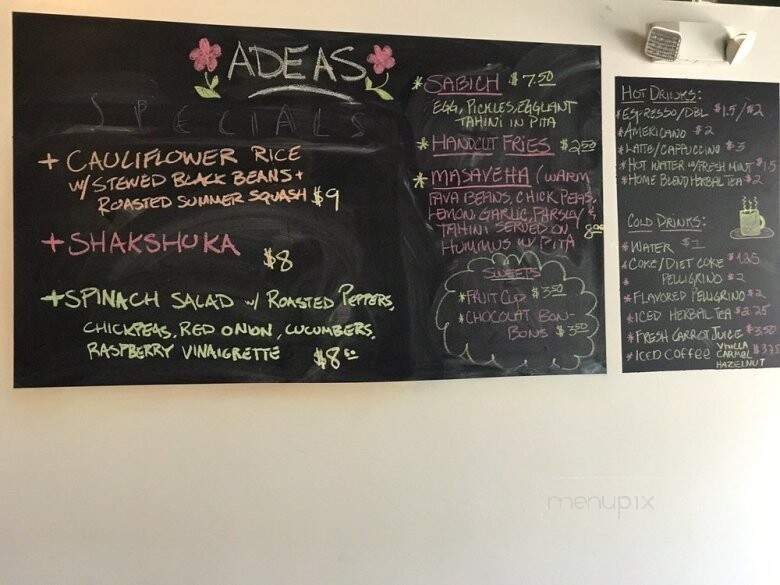 ADEAS
SPECIALS
+ CAULIFLOWER RICE
W/ STEWED BLACK BEANS +
ROASTED SUMMER SQUASH $9
+ SHAKSHUKA
$8
+ SPINACH SALAD W/ ROASTED PEPPERS,
CHICKPEAS, RED ONION, CUCUMBERS,
RASPBERRY VINAIGRETTE $8.00
* SABICH $7.50
EGG, PICKLES, EGGLANT
TAHINI IN PITA
* HANDCUT FRIES $2.50
* MASAVEHA (WARM
FAVA BEANS, CHICK PEAS,
LEMON, GARLIC, PARSLEY &
TAHINI SERVED ON
HUMMUS W/ PITA
SWEETS
* FRUIT CUP $3.50
* CHOCOLAT BON-
BONS $3.50
HOT DRINKS:
* ESPRESSO/DBL $1.5/$2
* AMERICANO $2
* LATTE/CAPPUCCINO $3
* HOT WATER W/FRESH MINT $1.5
* HOME BLEND HERBAL TEA $2
COLD DRINKS:
* WATER $1
* COKE/DIET COKE $1.25
* PELLIGRINO $2
* FLAVORED PELLIGRINO $2
* ICED HERBAL TEA $2.25
* FRESH CARROT JUICE $3.50
* ICED COFFEE VANILLA
CARMEL
HAZELNUT
menupix